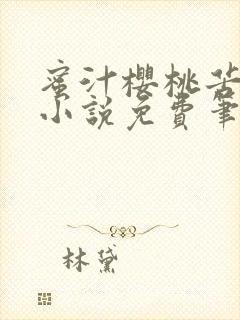 蜜汁櫻桃苦
小說免費筆
林黛